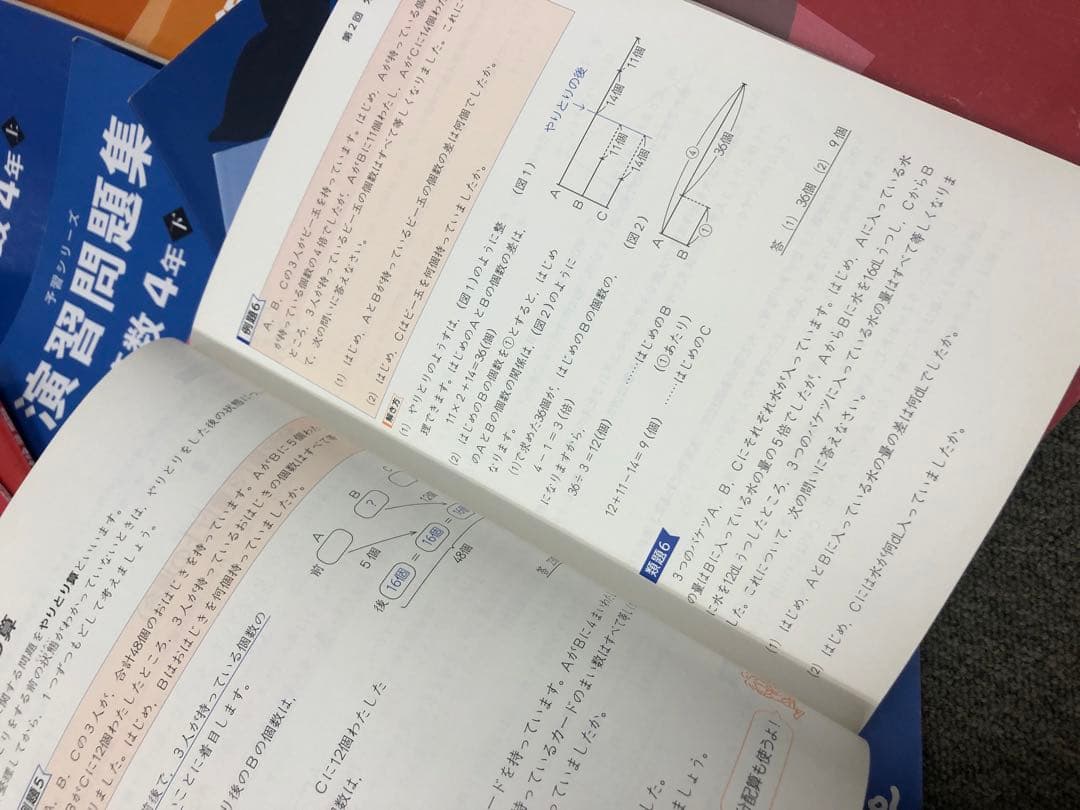 上
数4年
予習シリーズ
演習問題集
数4年
下
第2回
例題6
A、B、Cの3人がビー玉を持っています。はじめ、Aが持っている個
が持っている個数の4倍でしたが、AがBに11個わたし、AがCに14個わた
ところ、3人が持っているビー玉の個数はすべて等しくなりました。これに
て、次の問いに答えなさい。
(1) はじめ、AとBが持っているビー玉の個数の差は何個でしたか。
(2) はじめ、Cはビー玉を何個持っていましたか。
解き方
(1) やりとりのようすは、(図1)のように整
理できます。はじめのAとBの個数の差は、
11×2+14=36(個)
(2) はじめのBの個数を①とすると、はじめ
のAとBの個数の関係は、(図2)のように
なります。
(1)で求めた36個が、はじめのBの個数の、
4-1=3(倍)
になりますから、
36÷3=12(個) ……はじめのB
(①あたり)
12+11-14=9(個) ……はじめのC
(図1)
やりとりの後
A
B
C
11個
14個
14個
11個
(図2)
A
B
④
36個
①
答 (1) 36個 (2) 9個
類題6
3つのバケツA、B、Cにそれぞれ水が入っています。はじめ、Aに入っている水
の量はBに入っている水の量の5倍でしたが、AからBに水を16dLうつし、CからB
に水を12dLうつしたところ、3つのバケツに入っている水の量はすべて等しくなりま
した。これについて、次の問いに答えなさい。
(1) はじめ、AとBに入っている水の量の差は何dLでしたか。
(2) はじめ、Cには水が何dL入っていましたか。
算
関する問題をやりとり算といいます。
とりをする前の状態がわかっていないときは、やりとりをした後の状態
整理してから、1つずつもどして考えましょう。
題5
A、B、Cの3人が、合計48個のおはじきを持っています。AがBに5個わた
BがCに12個わたしたところ、3人が持っているおはじきの個数はすべて等
りました。はじめ、Bはおはじきを何個持っていましたか。
前後で、3人が持っている個数の
いことに着目します。
り後のBの個数は、
Cに12個わたした
数は、
前
A
B
?
C
5個
12個
後
16個
=
16個
=
48個
ードを持っています。AがBに4まいわた
持っているカードのまい数はすべて等し
っていましたか。
した。
しましょう。
分配算も使うよ!